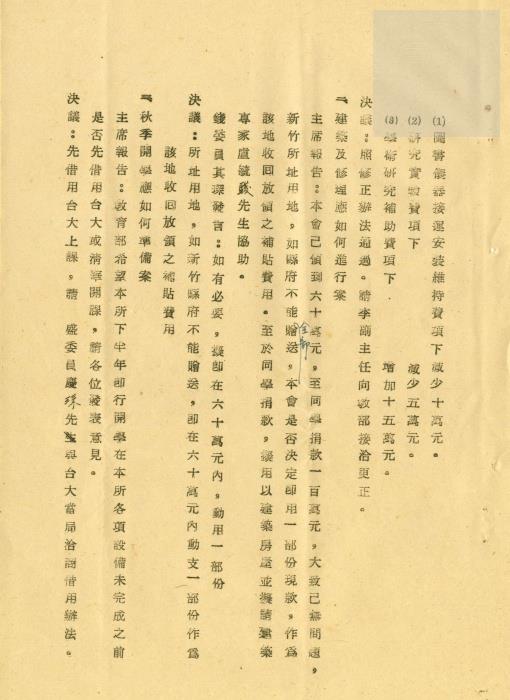 (1) 圖書儀器接運安裝維持費項下減少十萬元。
(2) 研究實驗費項下 減少五萬元。
(3) 學術研究補助費項下 增加十五萬元。
決議：照修正辦法通過。請李副主任向教部接洽更正。
一、建築及修理應如何進行案
主席報告：本會已領到六十萬元，至同學捐款一百萬元，大致已無問題，
新竹所址用地，如縣府不能全部贈送，本會是否決定即用一部份現款，作為
該地收回放領之補貼費用。至於同學捐款，擬用以建築房屋並擬請建築
專家盧毓駿先生協助。
錢委員其琛發言：如有必要，擬即在六十萬元內，動用一部份
決議：所址用地，如新竹縣府不能贈送，即在六十萬元內動支一部份作為
該地收回放領之補貼費用
一、秋季開學應如何準備案
主席報告：教育部希望本所下半年即行開學在本所各項設備未完成之前
是否先借用台大或清華開課，請各位發表意見。
決議：先借用台大上課，請 盛委員慶琜先生與台大當局洽商借用辦法。